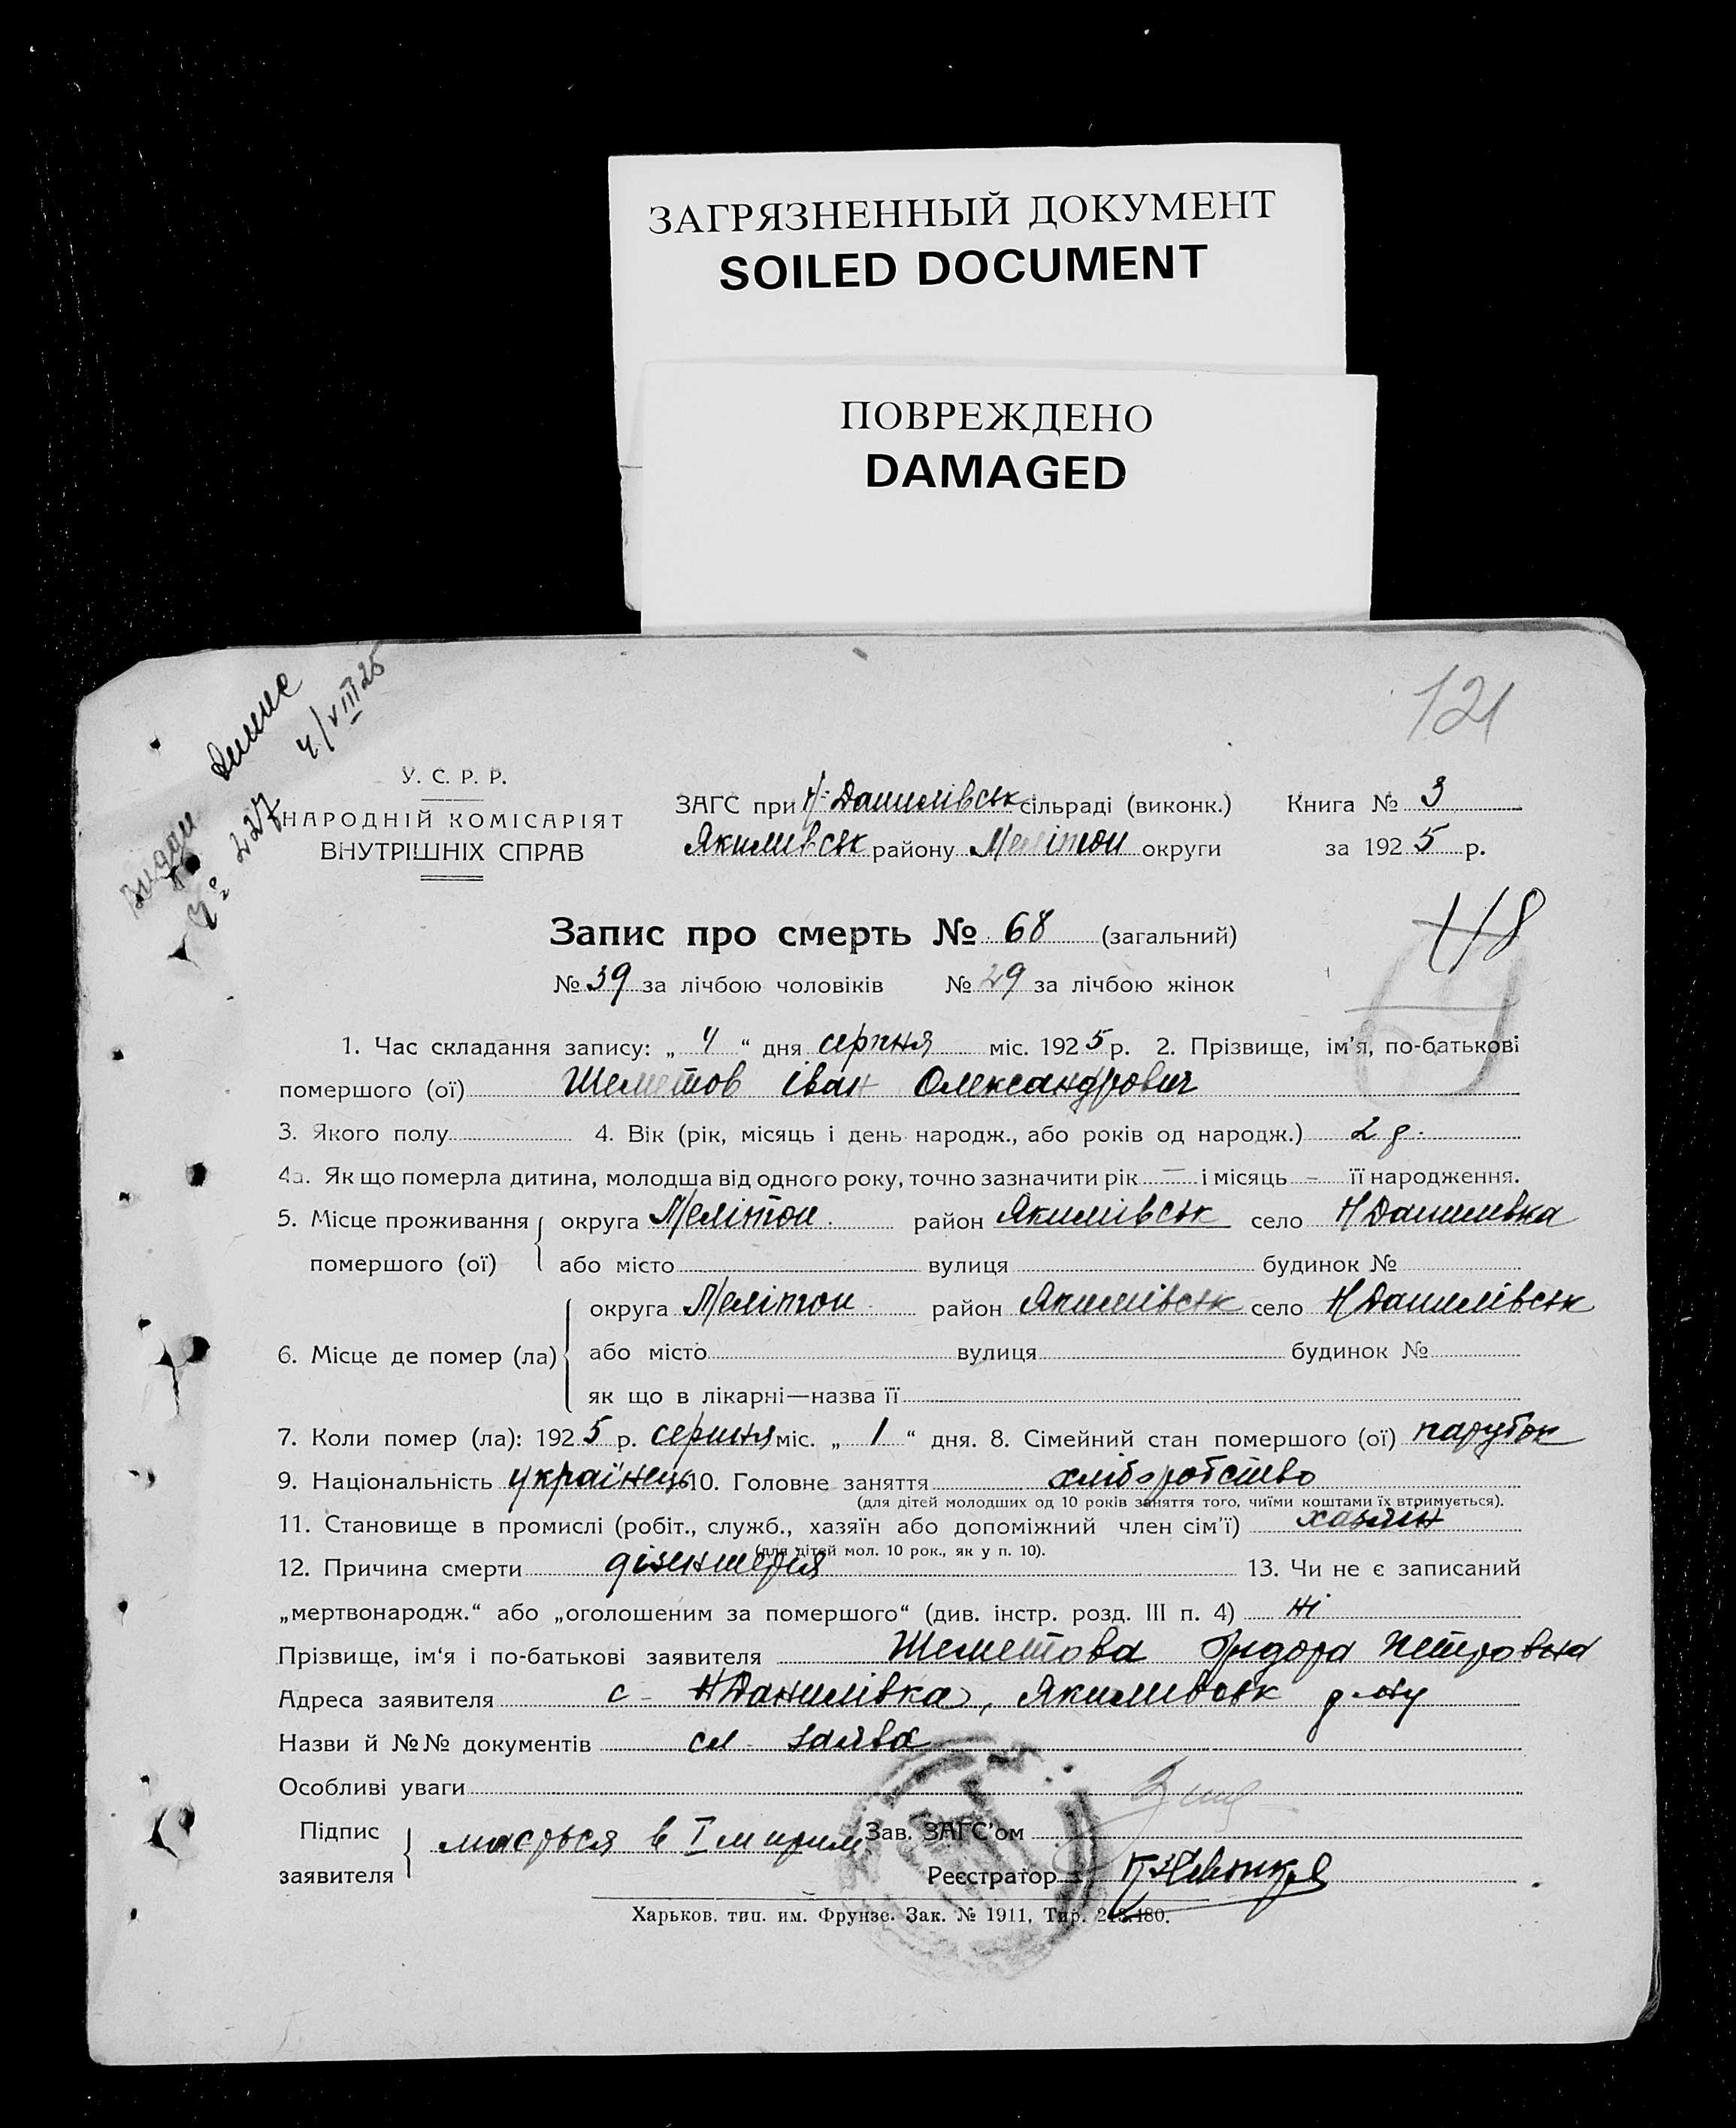 ЗАГРЯЗНЕННЫЙ ДОКУМЕНТ
SOILED DOCUMENT
ПОВРЕЖДЕНО
DAMAGED
121
4/VIII 25
№ 227
У. С. Р. Р.
НАРОДНІЙ КОМІСАРІЯТ
ВНУТРІШНІХ СПРАВ
ЗАГС при Н-Данилівськ сільраді (виконк.) Книга № 3
Якимівськ району Мелітоп округи за 1925 р.
Запис про смерть № 68 (загальний)
118
№ 39 за лічбою чоловіків № 29 за лічбою жінок
1. Час складання запису: „ 4 “ дня серпня міс. 1925 р. 2. Прізвище, ім'я, по-батькові
помершого (ої) Шеметов іван Олександрович
3. Якого полу 4. Вік (рік, місяць і день народж., або років од народж.) 2 р.
4а. Як що померла дитина, молодша від одного року, точно зазначити рік — і місяць — її народження.
5. Місце проживання помершого (ої) округа Мелітоп. район Якимівськ село Н Данилевка
або місто вулиця будинок №
6. Місце де помер (ла) округа Мелітоп район Якимівськ село Н Данилівськ
або місто вулиця будинок №
як що в лікарні—назва її
7. Коли помер (ла): 1925 р. серпня міс. „ 1 “ дня. 8. Сімейний стан помершого (ої) парубок
9. Національність українець 10. Головне заняття хліборобство
(для дітей молодших од 10 років заняття того, чиїми коштами їх втримується).
11. Становище в промислі (робіт., служб., хазяїн або допоміжний член сім'ї) хазяїн
(для дітей мол. 10 рок., як у п. 10).
12. Причина смерти дізентерія 13. Чи не є записаний
„мертвонародж.“ або „оголошеним за помершого“ (див. інстр. розд. III п. 4) ні
Прізвище, ім'я і по-батькові заявителя Шеметова Петровна
Адреса заявителя с- Н Данилівка, Якимівськ р-ну
Назви й №№ документів сл заява
Особливі уваги
Підпис заявителя мається в I м прим Зав. ЗАГС'ом
Реєстратор
Харьков. тип. им. Фрунзе. Зак. № 1911, Тир. 248.480.